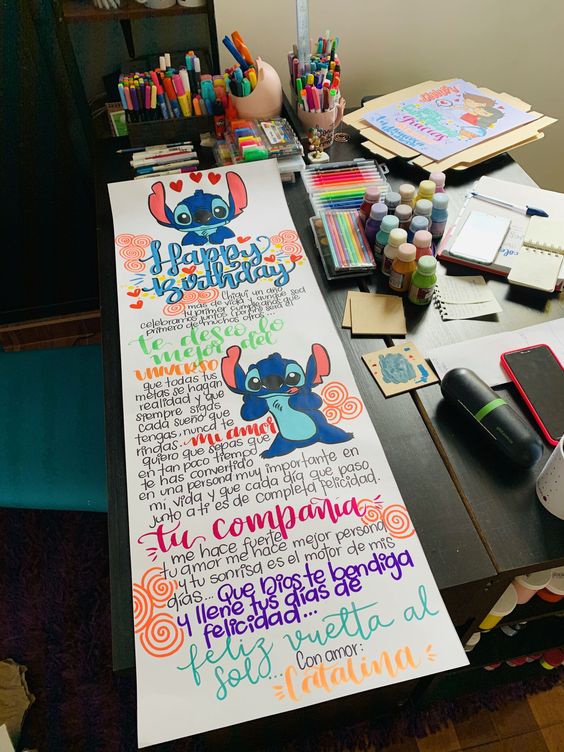 Happy
Birthday
Chiqui un año
más de vida y aunque sea
tu primer cumpleaños que
celebramos juntos, será el
primero de muchos otros...
te deseo lo
mejor del
universo
que todas tus
metas se hagan
realidad y que
siempre sigas
cada sueño que
tengas, nunca te
rindas. mi amor
quiero que sepas que
en tan poco tiempo
te has convertido
en una persona muy importante en
mi vida y que cada día que paso
junto a ti es de completa felicidad.
tu compañia
me hace fuerte
tu amor me hace mejor persona
y tu sonrisa es el motor de mis
días... Que Dios te bendiga
y llene tus días de
felicidad...
feliz vuelta al
sol... Con amor:
Catalina
gracias